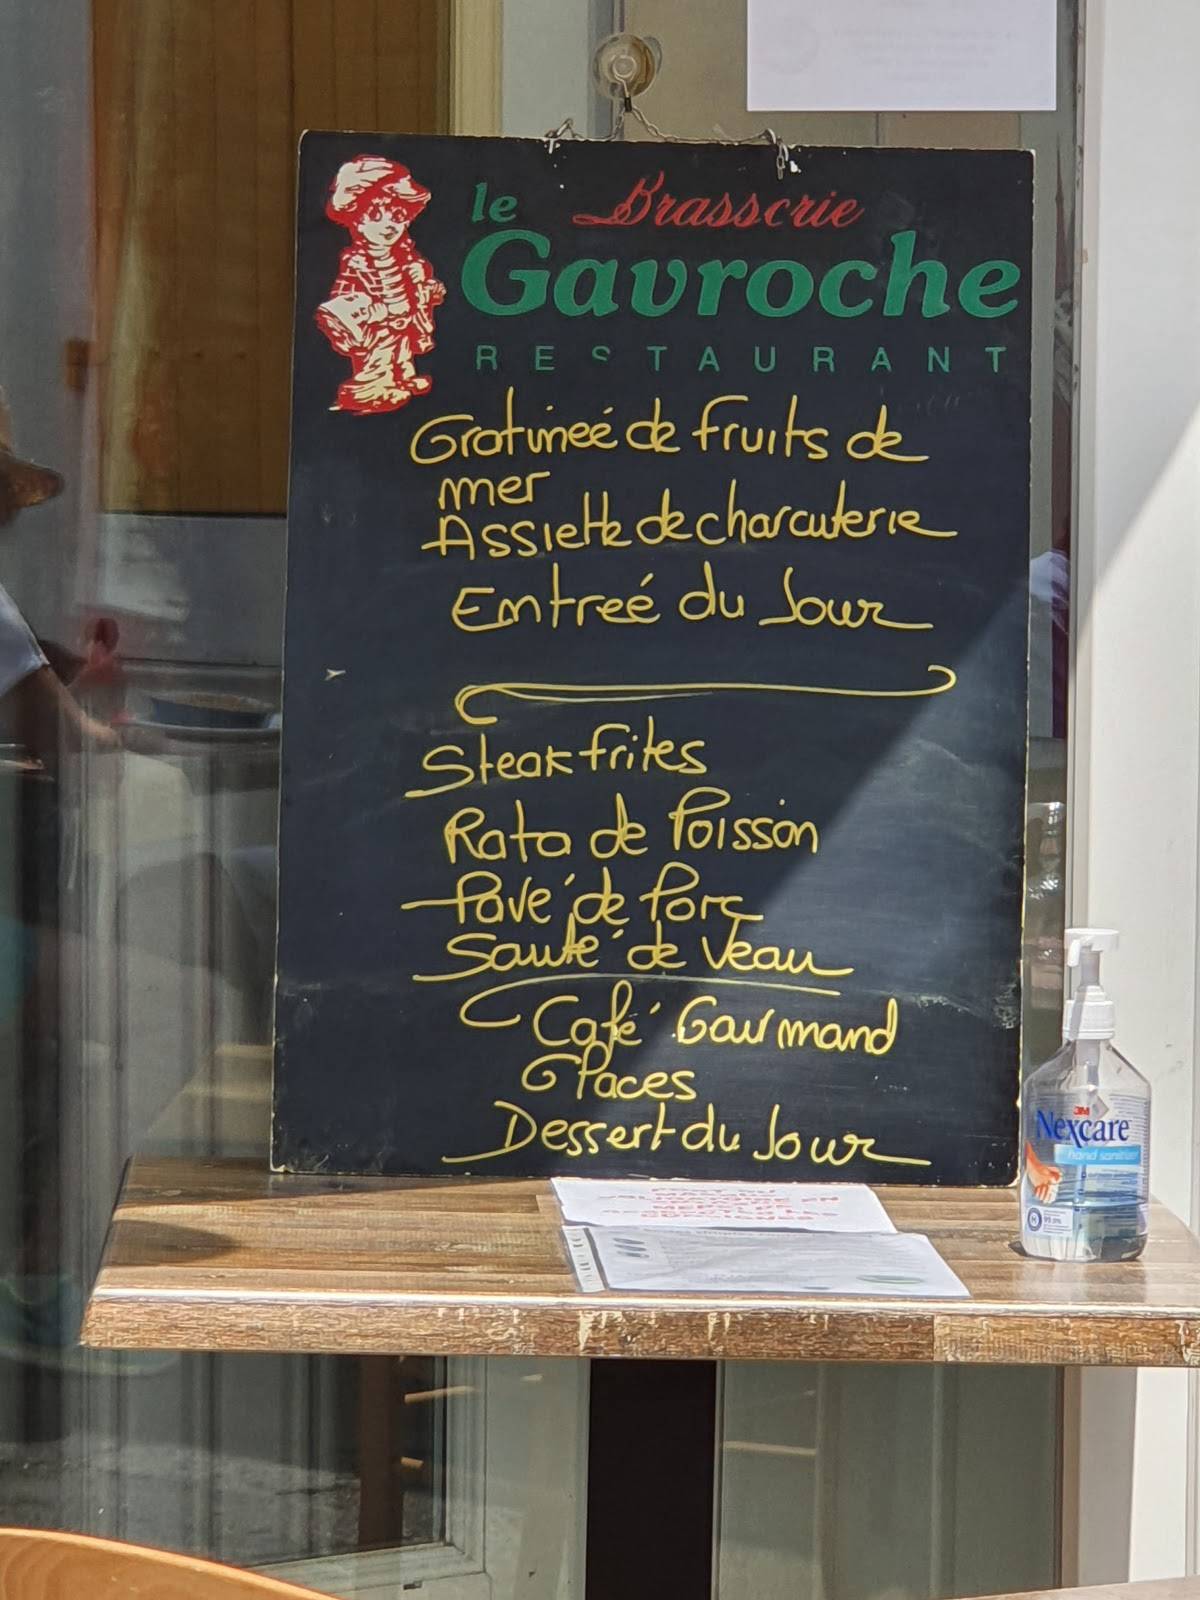 le Brasserie
Gavroche
RESTAURANT
Gratineé de fruits de
mer
Assiette de charcuterie
Entreé du Jour
Steak frites
Rata de Poisson
Pavé de Porc
Sauté de Veau
Café Gourmand
Glaces
Dessert du Jour
3M
Nexcare
hand sanitizer